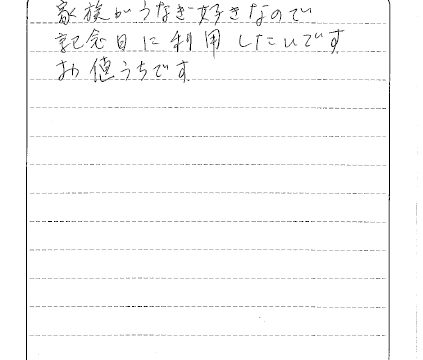 家族がうなぎ好きなので
記念日に利用したいです
お値うちです